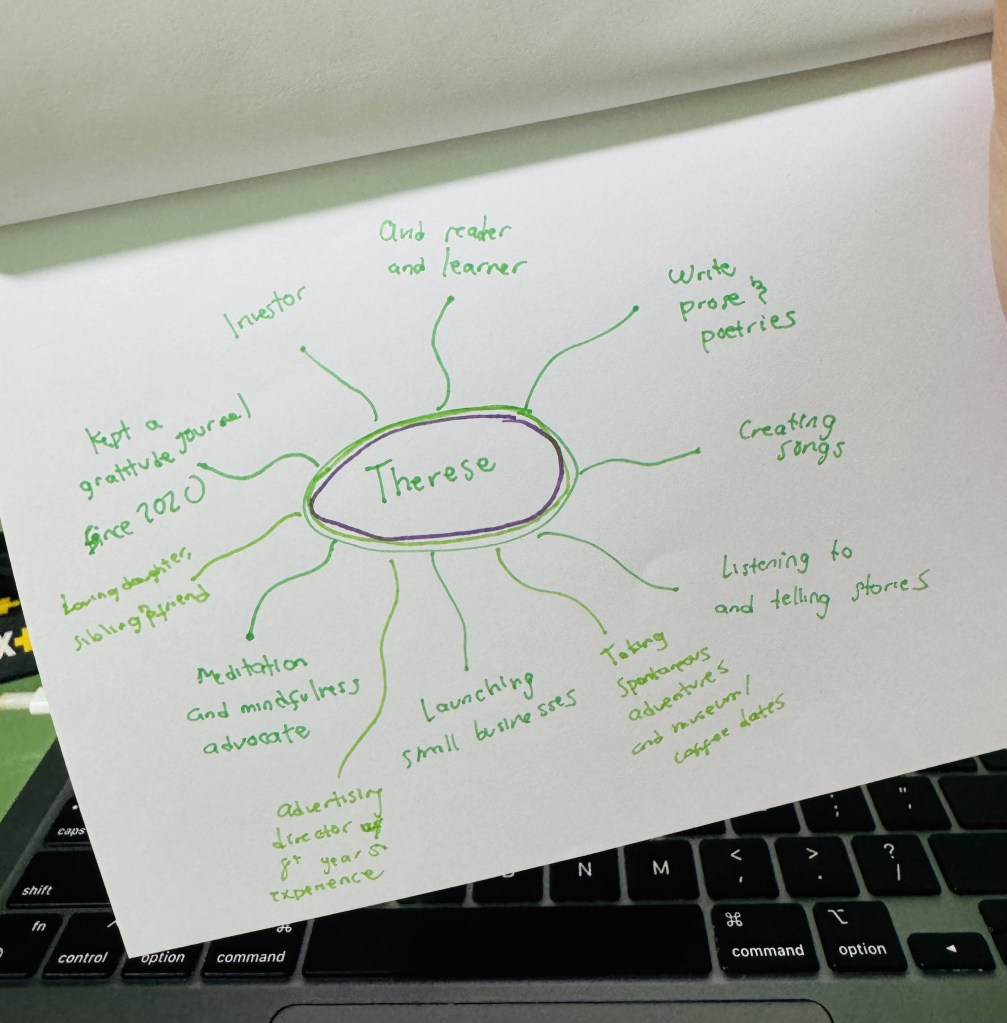 And reader
and learner
Investor
Write
prose &
poetries
Kept a
gratitude journal
since 2020
Therese
Creating
songs
Loving daughter,
sibling & friend
Listening to
and telling stories
Meditation
and mindfulness
advocate
Launching
small businesses
Taking
spontaneous
adventures
and museum/
coffee dates
advertising
director w/
8+ years
experience
caps
shift
fn
control
option
⌘
command
N
M
<
,
>
.
:
;
"
'
?
/
⌘
command
⌥
option
◄
x+